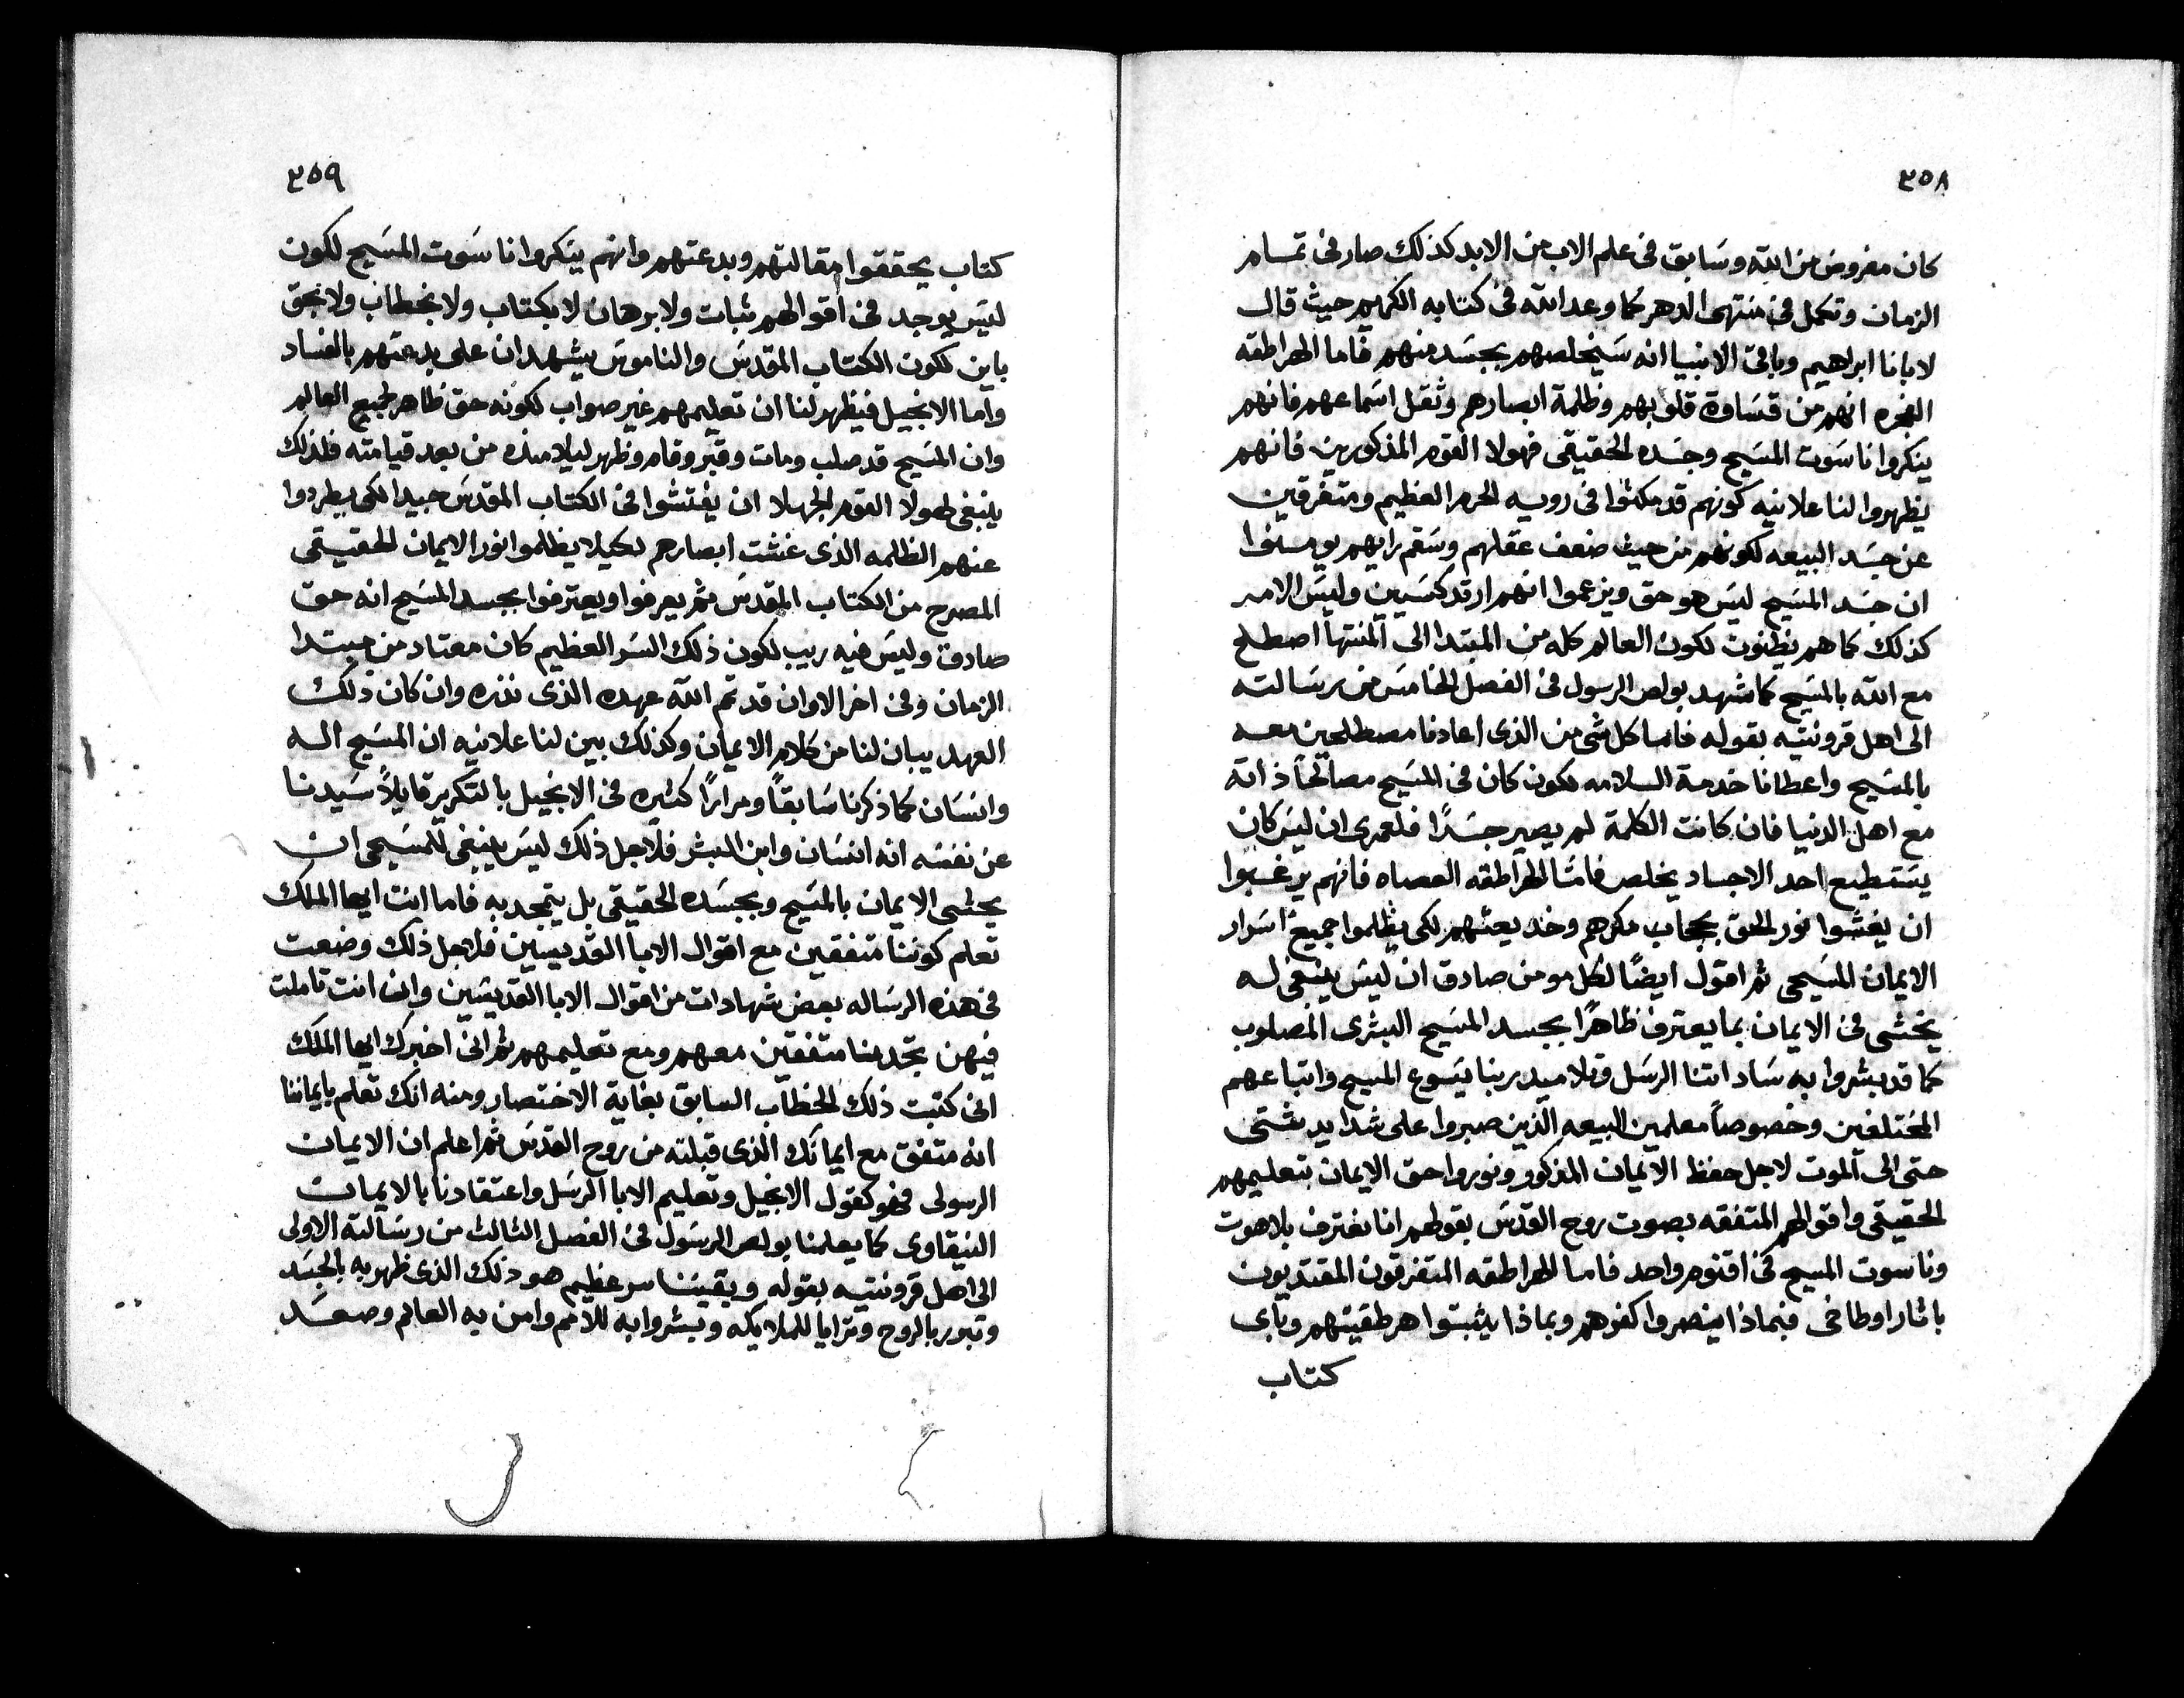 ٣٥٨
كان مفروض من الله وسَابق فى علم الاب من الابد كذلك صار فى تمام
الزمان وتكمل فى منتهى الدهر كما وعد الله فى كتابه الكريم حيث قال
لابانا ابراهيم وباقى الانبيا انه سَيخلصهم بجسَد منهم فاما الهراطقه
الفجره انهم من قسَاوة قلوبهم وظلمة ابصارهم وثقل اسَماعهم فانهم
ينكروا ناسَوت المسَيح وجسَده الحقيقى فهولا القوم المذكورين فانهم
يظهروا لنا علانيه كونهم قد مكثوا فى روسيه الحرم العظيم ومتفرقين
عن جسَد البيعه لكونهم من حيث ضعف عقلهم وسَقم رايهم يومنوا
ان جسَد المسَيح ليسَ هو حق ويزعموا انهم ارتدكسَيين وليسَ الامر
كذلك كما هم يظنون لكون العالم كله من المبتدا الى المنتها اصطلح
مع الله بالمسَيح كما شهد بولص الرسول فى الفصل الخامسَ من رسَالته
الى اهل قرونتيه بقوله فاما كل شى من الذى اعادنا مصطلحين معه
بالمسَيح واعطانا خدمة السلامه لكون كان فى المسَيح مصالحاً ذاته
مع اهل الدنيا فان كانت الكلمة لم يصير جسَدًا فلعمرى ان ليسَ كان
يسَتطيع احد الاجساد يخلص فامّا الهراطقه العصاه فانهم يرغبوا
ان يغشوا نور الحق بحجاب مكرهم وخديعتهم لكى يظلموا جميع اسَرار
الايمان المسَيحى ثم اقول ايضًا لكل مومن صادق ان ليسَ ينبغى له
يخشى فى الايمان بما يعترف ظاهرًا بجسد المسَيح البشرى المصلوب
كما قد بشروا به سَاداتنا الرسَل وتلاميد ربنا يسَوع المسيح واتباعهم
المختلفين وخصوصاً معلمين البيعه الذين صبروا على شدايد شتى
حتى الى الموت لاجل حفظ الايمان المذكور ونوروا حق الايمان بتعليمهم
الحقيقى واقوالهم المتفقه بصوت روح القدسَ بقولهم انا نعترف بلاهوت
وناسوت المسيح فى اقنوم واحد فاما الهراطقه المتفرقون المقتديون
باثار اوطاخى فبماذا ينصروا كفرهم وبماذا يثبتوا هرطقيتهم وباى
كتاب
٣٥٩
كتاب يحققوا مقالتهم وبدعتهم وانهم ينكروا ناسَوت المسَيح لكون
ليسَ يوجد فى اقوالهم ثبات ولا برهان لا بكتاب ولا بخطاب ولا بحق
باين لكون الكتاب المقدسَ والناموسَ يشهدان على بدعتهم بالفساد
واما الانجيل فيظهر لنا ان تعليمهم غير صواب لكونه حق ظاهر لجميع العالم
وان المسَيح قد صلب ومات وقبر وقام وظهر لتلاميذه من بعد قيامته فلذلك
ينبغى لهولا القوم الجهلا ان يفتشوا فى الكتاب المقدسَ جيدا لكى يطردوا
عنهم الظلمه الذى غشت ابصارهم لكيلا يظلموا نور الايمان الحقيقى
المصرح من الكتاب المقدسَ ثم يعرفوا ويعترفوا بجسد المسَيح انه حق
صادق وليسَ فيه ريب لكون ذلك السَر العظيم كان معتاد من مبتدا
الزمان وفى اخر الاوان قد تم الله عهده الذى نذره وان كان ذلك
العهد يبان لنا من كلام الايمان وكذلك يبين لنا علانيه ان المسَيح اله
وانسَان كما ذكرنا سَابقاً ومرارًا كثيره فى الانجيل بالتكرير قايلاً سَيدنا
عن نفسَه انه انسَان وابن البشر فلاجل ذلك ليسَ ينبغى للمسَيحى ان
يخشى الايمان بالمسَيح وبجسَده الحقيقى بل يتمجد به فاما انت ايها الملك
تعلم كوننا متفقين مع اقوال الابا القديسين فلاجل ذلك وضعت
فى هذه الرسَاله بعض شهادات من اقوال الابا القديسَين وان انت تاملت
فيهن تجدهنا متفقين معهم ومع تعليمهم ثم انى اخبرك ايها الملك
انى كتبت ذلك الخطاب السابق بغاية الاختصار ومنه انك تعلم بايماننا
انه متفق مع ايمانك الذى قبلته من روح القدسَ ثم اعلم ان الايمان
الرسولى فهو كقول الانجيل وتعليم الابا الرسَل واعتقادنا بالايمان
النيقاوى كما يعلمنا بولص الرسَول فى الفصل الثالث من رسَالته الاولى
الى اهل قرونتيه بقوله ويقيننا سر عظيم هو ذلك الذى ظهر به بالجسَد
وتبرر بالروح وترايا للملايكه وبشروا به للامم وامن به العالم وصعَد